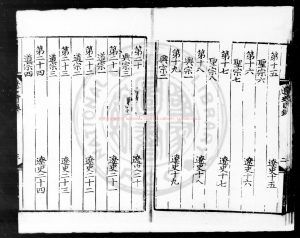 第十五
聖宗六 遼史十五
第十六
聖宗七 遼史十六
第十七
聖宗八 遼史十七
第十八
興宗一 遼史十八
第十九
興宗二 遼史十九
第二十
興宗三 遼史二十
第二十一
道宗一 遼史二十一
第二十二
道宗二 遼史二十二
第二十三
道宗三 遼史二十三
第二十四
道宗四 遼史二十四